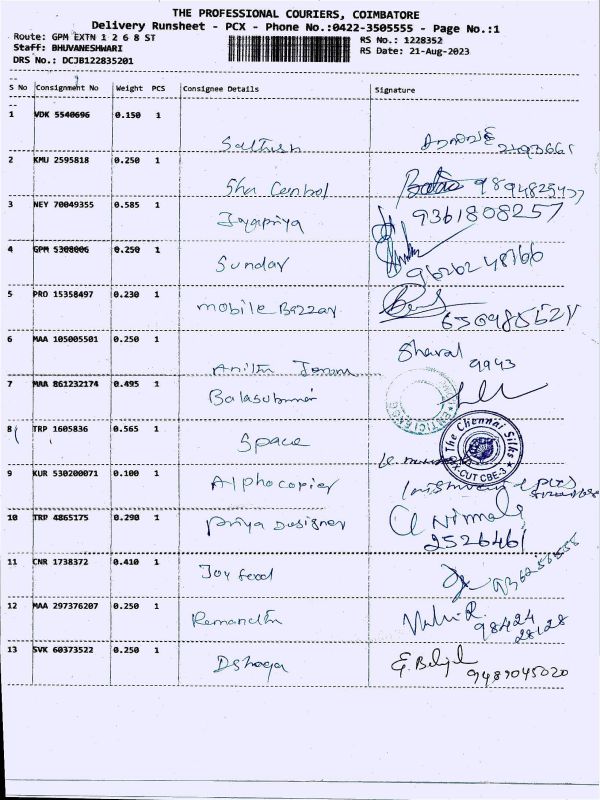 THE PROFESSIONAL COURIERS, COIMBATORE
Delivery Runsheet - PCX - Phone No.:0422-3505555 - Page No.:1
Route: GPM EXTN 1 2 6 8 ST RS No.: 1228352
Staff: BHUVANESHWARI RS Date: 21-Aug-2023
DRS No.: DCJB122835201
S No Consignment No Weight PCS Consignee Details Signature
1 VDK 5540696 0.150 1
2 KMU 2595818 0.250 1
3 NEY 70049355 0.585 1 Jayapriya 9361808257
4 GPM 5308006 0.250 1 Sundar
5 PRO 15358497 0.230 1 mobile Bazzar
6 MAA 105005501 0.250 1 Sharal 9943
7 MAA 861232174 0.495 1
8 TRP 1605836 0.565 1 Space The Chennai Silks
9 KUR 530200071 0.100 1 Alphacopier
10 TRP 4865175 0.290 1 priya Dusigner Nirmala
2526461
11 CNR 1738372 0.410 1 Joy food
12 MAA 297376207 0.250 1 98424
28128
13 SVK 60373522 0.250 1 9489045020